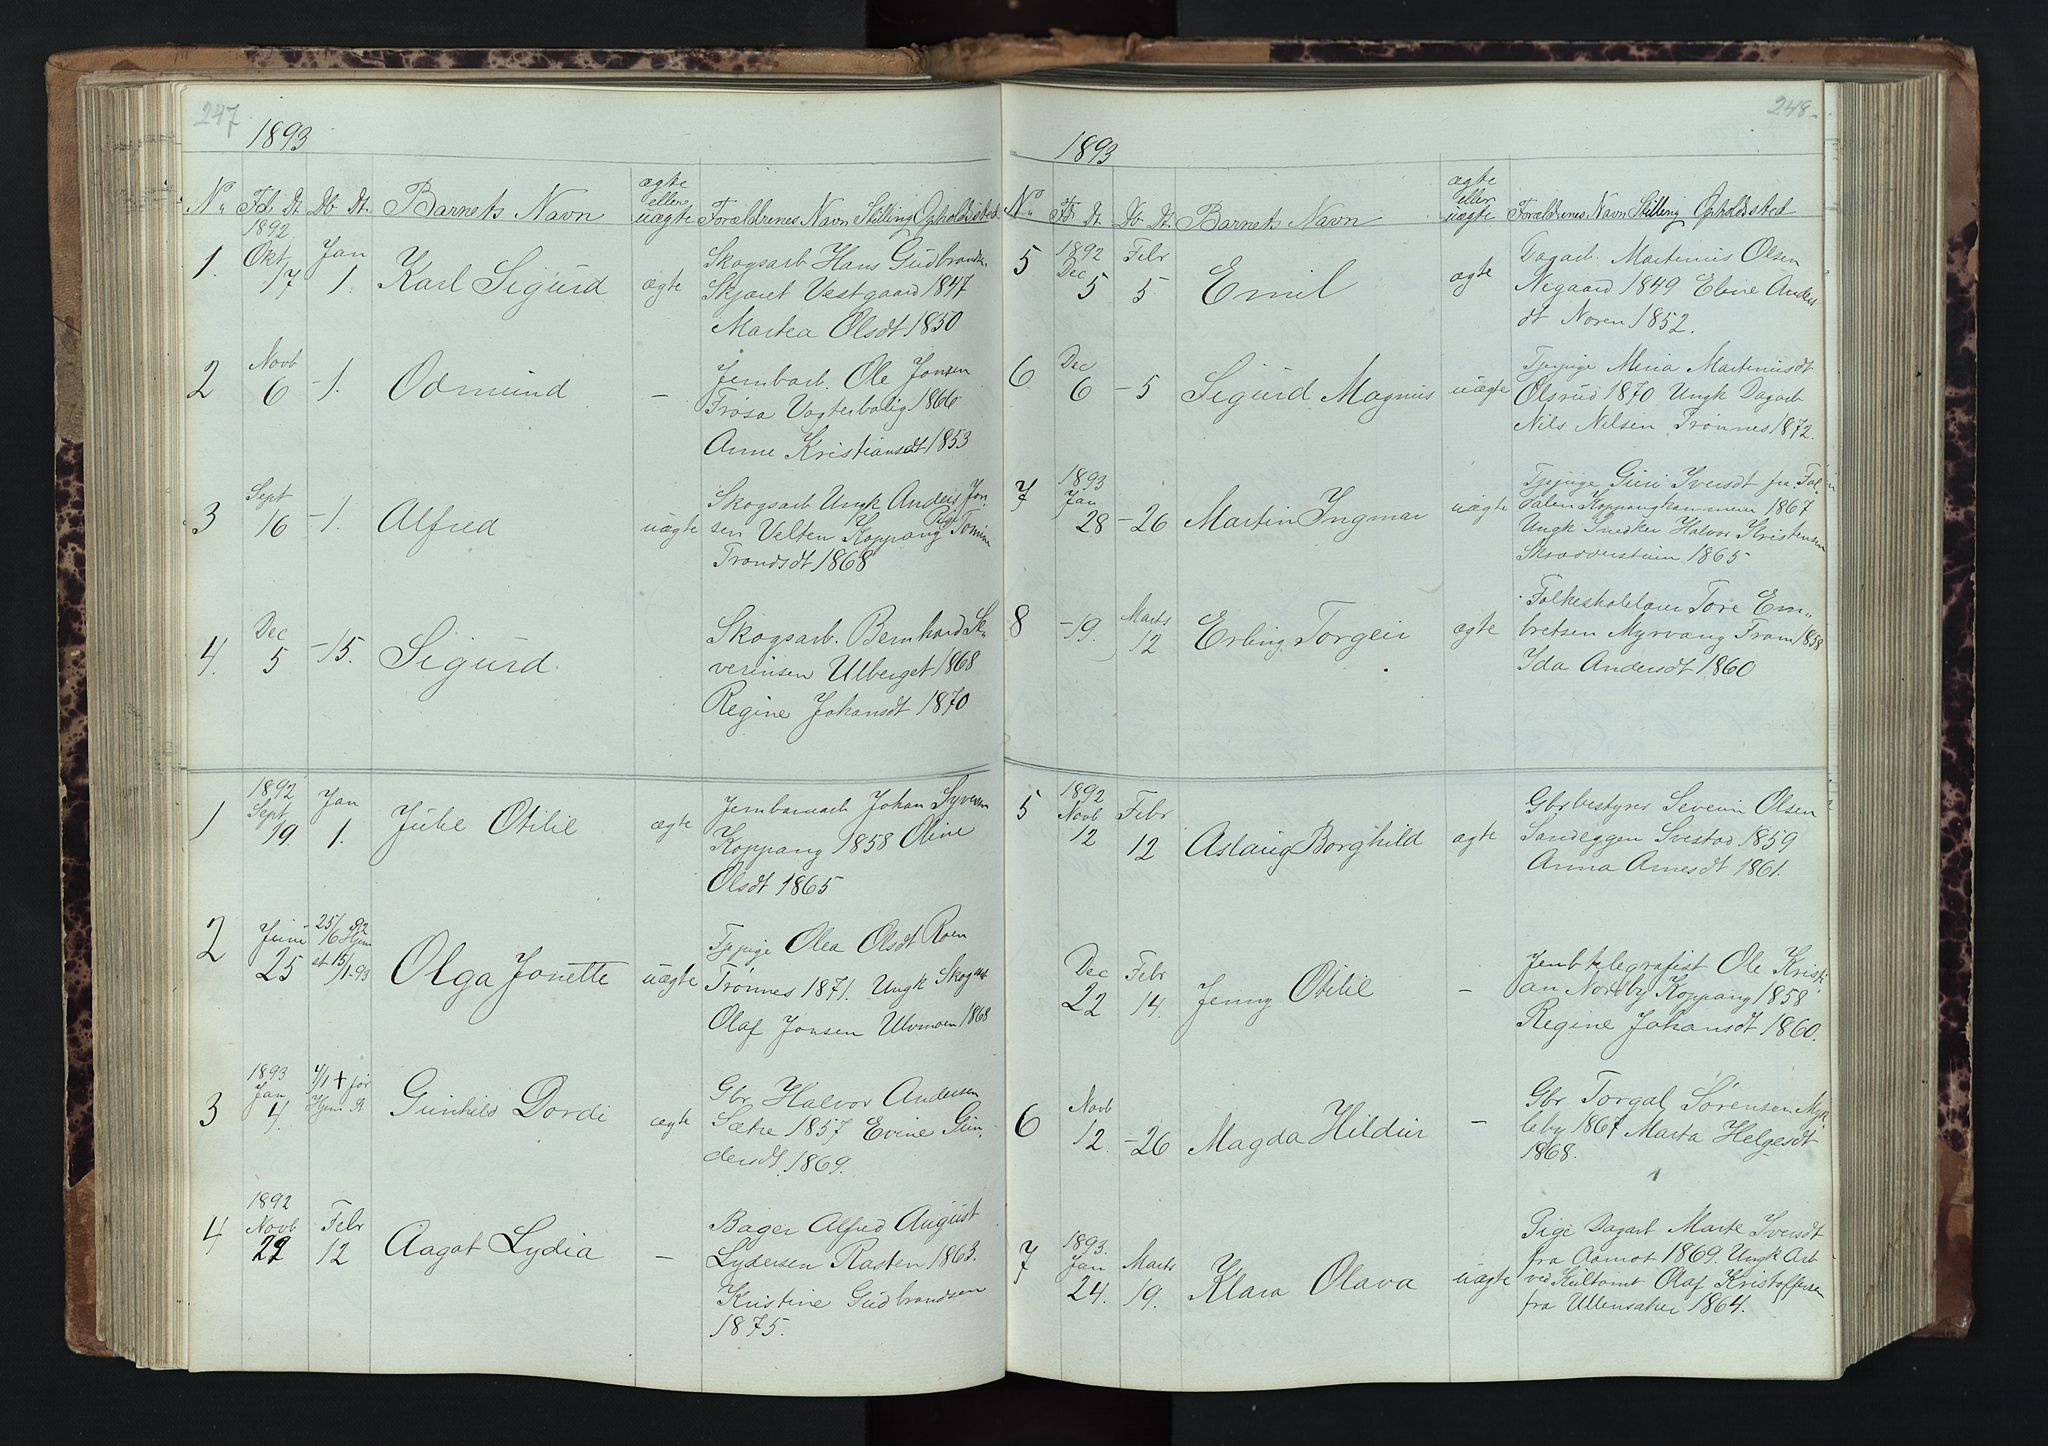 247
1893
No. Fd. Dt. Db. Dt. Barnets Navn ægte eller uægte Forældrenes Navn Stilling Opholdssted
1. 1892 Okt 17 Jan 1. Karl Sigurd ægte Skogsarb Hans Gudbrands.
Skjæret Vestgaard 1847
Martea Olsdt 1850
2 Novb 6 -1. Odmund - Jernbarb. Ole Jonsen
Trøsa Vogterbolig 1866
Anne Kristiansdt 1853
3 Sept 16 -1. Alfred uægte Skogsarb Ungk Anders Jon-
sen Velten Koppang Pige Tomine
Trondsdt 1868
4. Dec 5 -15. Sigurd Skogsarb. Bernhard Se-
verinsen Ulberget 1868
Regine Johansdt 1870
1 1892 Sept 19. Jan 1. Julie Otilie ægte Jernbanearb Johan Syversen
Koppang 1858 Oline
Olsdt 1865
2 Juni 25 25/6 92 Hjem st 15/1-93 Olga Jonette uægte Tjpige Olea Olsdt Roen
Trønnes 1871. Ungk Skogarb
Olaf Jonsen Ulvmoen 1868
3 1893 Jan 4. 4/1 + før Hjem st Gunhild Dordi ægte Gbr Halvor Andersen
Sætre 1857 Evine Gun-
dersdt 1869.
4 1892 Novb 22 Febr 12 Aagot Lydia - Bager Alfred August
Lydersen Rasten 1863.
Kristine Gudbrandsen
1875.
248
1893
No. Fd. Dt. Db. Dt. Barnets Navn ægte eller uægte Forældrenes Navn Stilling Opholdssted
5 1892 Dec 5 Febr 5 Emil ægte Dagarb. Martinus Olsen
Negaard 1849 Eline Anders
dt Noren 1852.
6 Dec 6 -5 Sigurd Magnus uægte Tjepige Mina Martinusdt
Olsrud 1870 Ungk Dagarb
Nils Nilsen Trønnes 1872.
7 1893 Jan 28 -26 Martin Ingmar uægte Tjepige Guri Iversdt fra Fol-
dalen Koppangkammeren 1867
Ungk Snedker Halvor Kristensen
Skrædderstuen 1865
8 -19. Marts 12 Erling Torgeir ægte Folkeskolelærer Tore Em-
bretsen Myrvang Fram 1858
Ida Andersdt 1860
5 1892 Novb 12 Febr 12 Aslaug Borghild ægte Gbrbestyrer Severin Olsen
Sandeggen Svestad 1859
Anna Arnesdt 1861.
Dec 22 Febr 14. Jenny Otilie - Jernbtelegrafist Ole Kristi-
an Nordby Koppang 1858
Regine Johansdt 1860.
6 Novb 12. -26 Magda Hildur - Gbr Torgal Sørensen Myk-
leby 1867 Marta Helgesdt
1868.
7 1893. Jan 24. Marts 19. Klara Olava uægte Pige Dagarb Marte Iversdt
fra Aamot 1869. Ungk Arb
ved Olaf Kristoffersen
fra Ullensaker 1864.